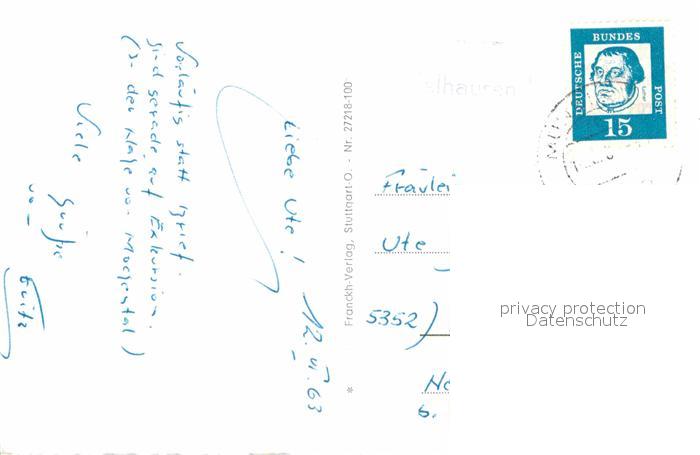 12. VI. 63
Liebe Ute!
Vorläufig statt Brief.
Sind gerade auf Exkursion.
(In der Nähe von Morgental)
Viele
Grüße
von
Fritz
Franckh-Verlag, Stuttgart-O. - Nr. 27218-100
*
DEUTSCHE BUNDES POST
15
Fräulei
Ute
5352)
b.
privacy protection
Datenschutz